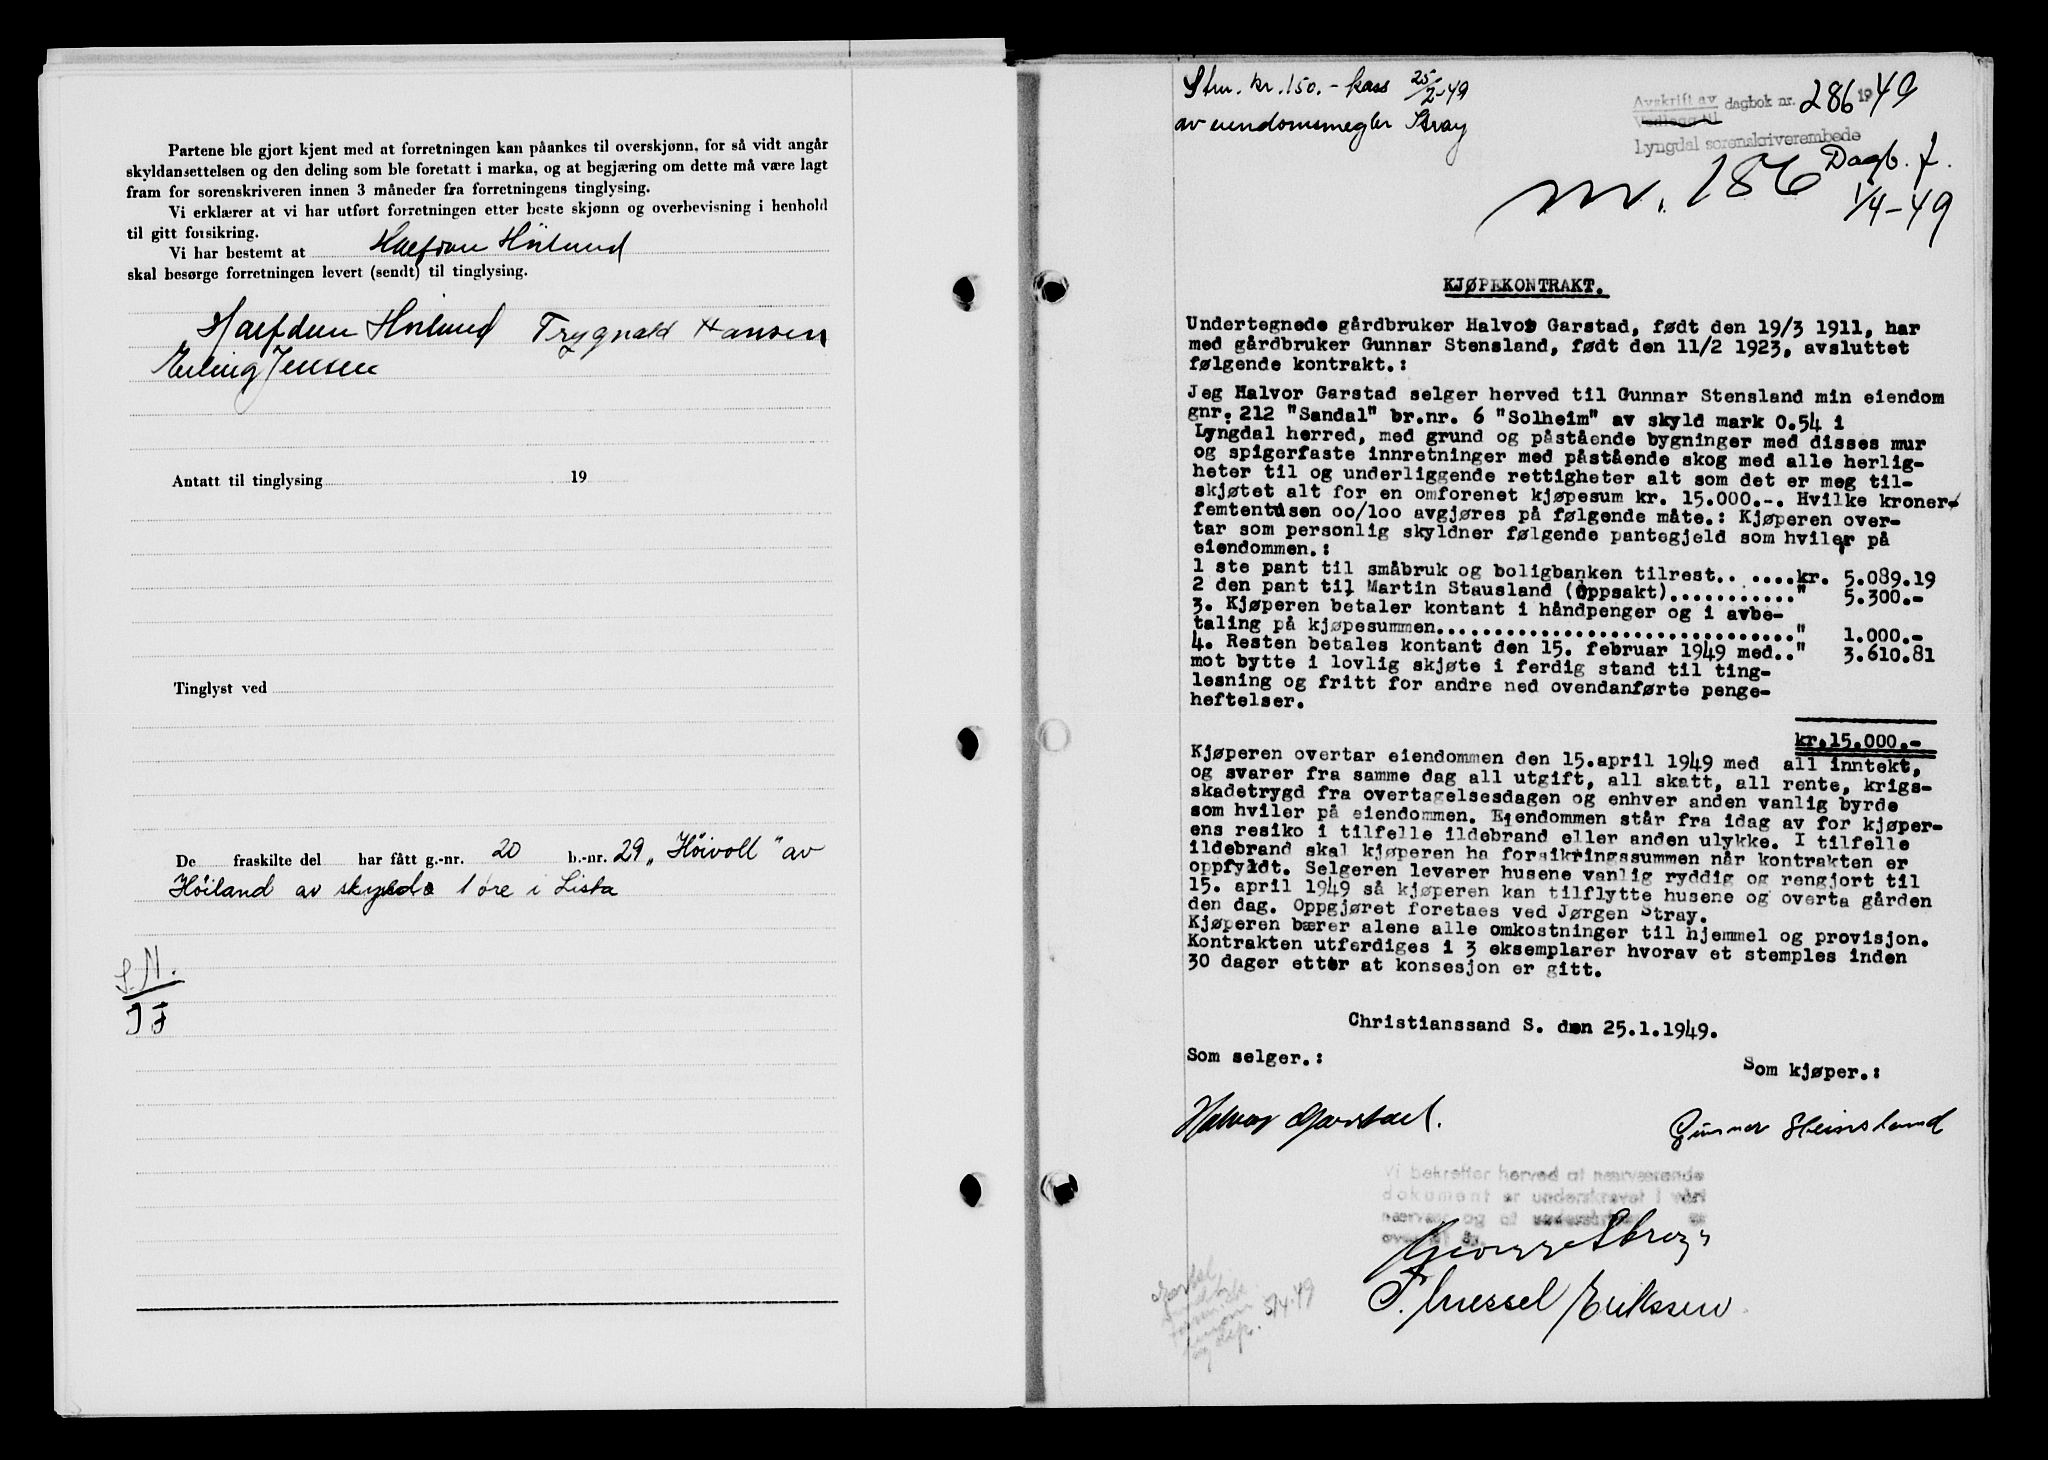 Partene ble gjort kjent med at forretningen kan påankes til overskjønn, for så vidt angår
skyldansettelsen og den deling som ble foretatt i marka, og at begjæring om dette må være lagt
fram for sorenskriveren innen 3 måneder fra forretningens tinglysing.
Vi erklærer at vi har utført forretningen etter beste skjønn og overbevisning i henhold
til gitt forsikring.
Vi har bestemt at Halfdan Höiland
skal besørge forretningen levert (sendt) til tinglysing.
Halfdan Höiland Trygvald Hansen
Erling Jensen
Antatt til tinglysing 19
Tinglyst ved
De fraskilte del har fått g.-nr. 20 b.-nr. 29 „Höivoll" av
Höiland av skyld 1 öre i Lista
S.N.
J F
Stm. kr. 150.- kass 25/2-49
av eiendomsmegler Stray
Avskrift av dagbok nr. 286 1949
Vedlegg til
Lyngdal sorenskriverembede
nr. 186 Dagb. f.
1/4-49
KJØPEKONTRAKT.
Undertegnede gårdbruker Halvor Garstad, født den 19/3 1911, har
med gårdbruker Gunnar Stensland, født den 11/2 1923, avsluttet
følgende kontrakt.:
Jeg Halvor Garstad selger herved til Gunnar Stensland min eiendom
gnr. 212 "Sandal" br.nr. 6 "Solheim" av skyld mark 0.54 i
Lyngdal herred, med grund og påstående bygninger med disses mur
og spigerfaste innretninger med påstående skog med alle herlig-
heter til og underliggende rettigheter alt som det er meg til-
skjøtet alt for en omforenet kjøpesum kr. 15.000.-. Hvilke kroner-
femtentusen oo/loo avgjøres på følgende måte.: Kjøperen over-
tar som personlig skyldner følgende pantegjeld som hviler på
eiendommen.:
1 ste pant til småbruk og boligbanken tilrest.. .....kr. 5.089.19
2 den pant til Martin Stausland (Oppsakt)............" 5.300.-
3. Kjøperen betaler kontant i håndpenger og i avbe-
taling på kjøpesummen................................" 1.000.-
4. Resten betales kontant den 15. februar 1949 med.." 3.610.81
mot bytte i lovlig skjøte i ferdig stand til ting-
lesning og fritt for andre ned ovendanførte penge-
heftelser.
kr.15.000.-
Kjøperen overtar eiendommen den 15.april 1949 med all inntekt,
og svarer fra samme dag all utgift, all skatt, all rente, krigs-
skadetrygd fra overtagelsesdagen og enhver anden vanlig byrde
som hviler på eiendommen. Eiendommen står fra idag av for kjøper-
ens resiko i tilfelle ildebrand eller anden ulykke. I tilfelle
ildebrand skal kjøperen ha forsikringssummen når kontrakten er
oppfyldt. Selgeren leverer husene vanlig ryddig og rengjort til
15. april 1949 så kjøperen kan tilflytte husene og overta gården
den dag. Oppgjøret foretaes ved Jørgen Stray.
Kjøperen bærer alene alle omkostninger til hjemmel og provisjon.
Kontrakten utferdiges i 3 eksemplarer hvorav et stemples inden
30 dager etter at konsesjon er gitt.
Christianssand S. den 25.1.1949.
Som selger.:
Som kjøper.:
Halvor Garstad.
Gunnar Steinsland
Vi bekrefter herved at nærværende
dokument er underskrevet i vårt
nærvær og at
over 18 år.
Stray
Eriksen
5/4-49